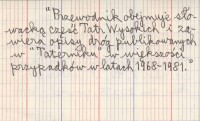 "Przewodnik obejmuje sło-
wacką część Tatr Wysokich i za-
wiera opisy dróg publikowanych
w "Taterniku" w większości
przypadków w latach 1968-1981."